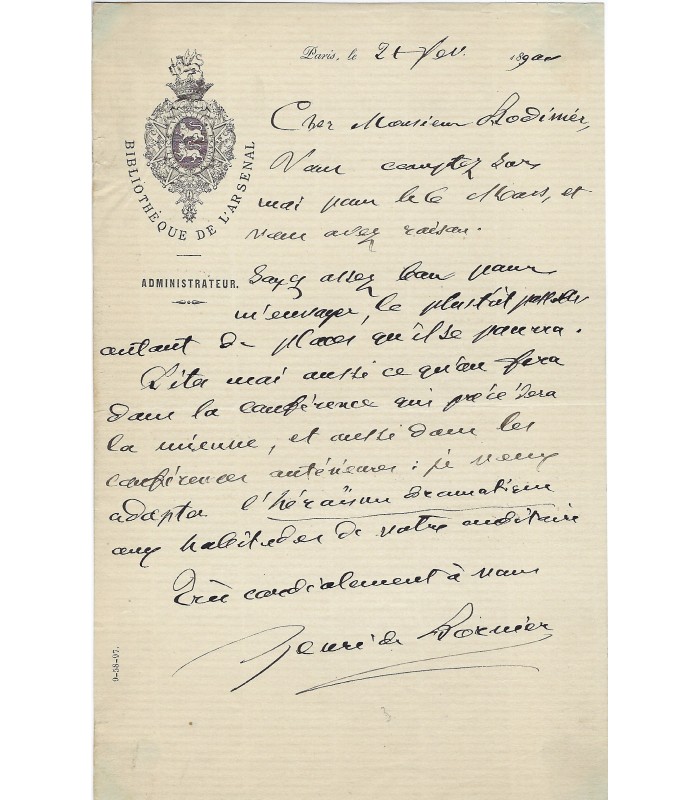 Paris, le 21 fev. 189
BIBLIOTHÈQUE DE L'ARSENAL
ADMINISTRATEUR.
Cher Monsieur Bodinier,
Vous comptez sur
moi pour le 6 Mars, et
vous avez raison.
Soyez assez bon pour
m'envoyer, le plustôt possible
autant de places qu'il se pourra.
Dites moi aussi ce qu'on fera
dans la conférence qui précèdera
la mienne, et aussi dans les
conférences antérieures : je veux
adapter l'héroïsme dramatique
aux habitudes de votre auditoire
Très cordialement à vous
Henri de Bornier
9-58-97.
3